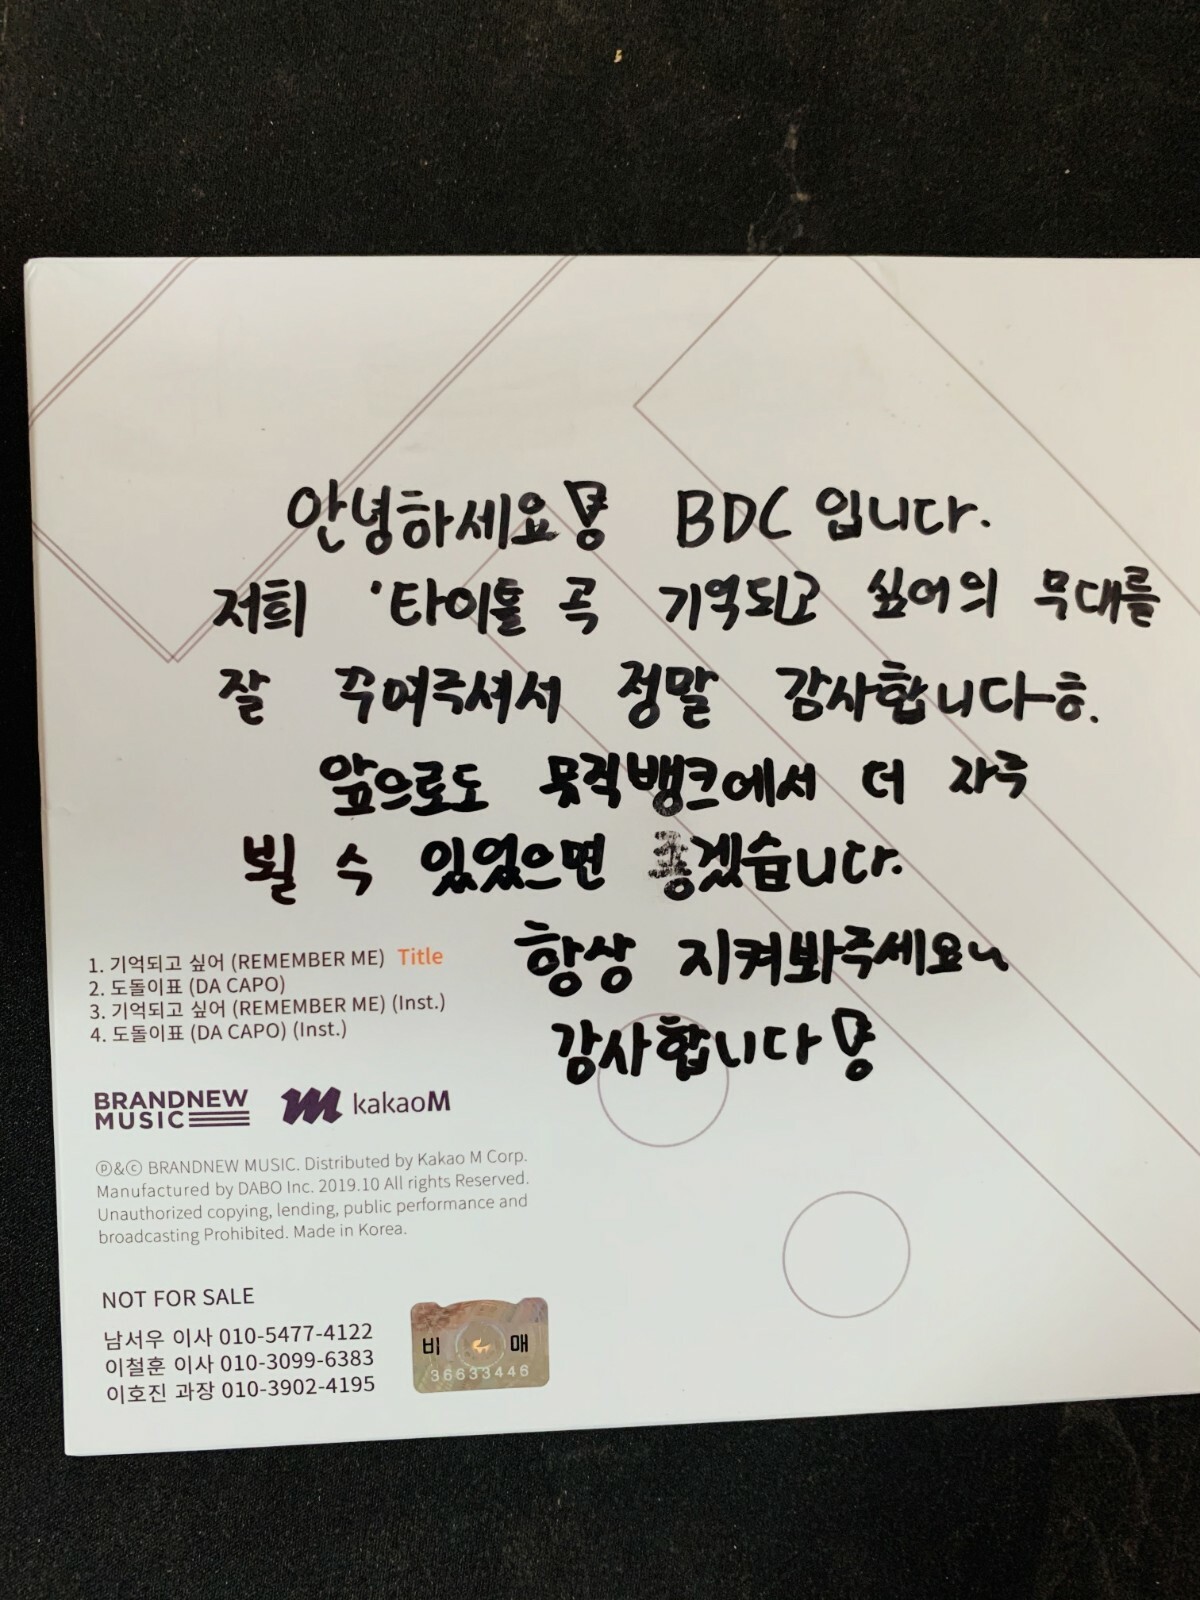 안녕하세요!! BDC 입니다.
저희 '타이틀 곡 기억되고 싶어의 무대를
잘 꾸며주셔서 정말 감사합니다ㅎ.
앞으로도 뮤직뱅크에서 더 자주
뵐 수 있었으면 좋겠습니다.
항상 지켜봐주세요~
감사합니다!!
1. 기억되고 싶어 (REMEMBER ME) Title
2. 도돌이표 (DA CAPO)
3. 기억되고 싶어 (REMEMBER ME) (Inst.)
4. 도돌이표 (DA CAPO) (Inst.)
BRANDNEW
MUSIC
kakaoM
Ⓟ&ⓒ BRANDNEW MUSIC. Distributed by Kakao M Corp.
Manufactured by DABO Inc. 2019.10 All rights Reserved.
Unauthorized copying, lending, public performance and
broadcasting Prohibited. Made in Korea.
NOT FOR SALE
남서우 이사 010-5477-4122
이철훈 이사 010-3099-6383
이호진 과장 010-3902-4195
비 매
36633446